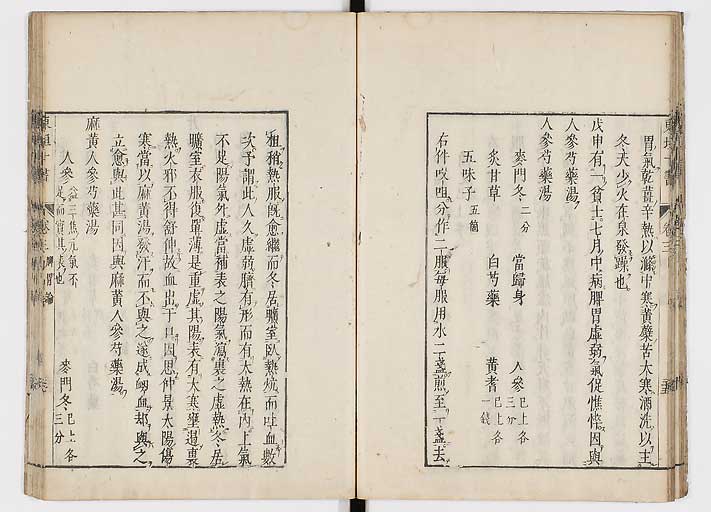 胃氣乾薑辛熱以滌中寒黃蘗苦大寒酒洗以主
冬天少火在泉發躁也
戊申有一貧士七月中病脾胃虛弱氣促憔悴因與
人參芍藥湯
人參芍藥湯
麥門冬二分 當歸身 人參已上各三分
炙甘草 白芍藥 黃耆已上各一錢
五味子五箇
右件㕮咀分作二服每服用水二盞煎至一盞去
柤稍熱服旣愈繼而冬居曠室臥熱炕而吐血數
次予謂此人久虛弱臍有形而有大熱在內上氣
不足陽氣外虛當補表之陽氣瀉裏之虛熱冬居
曠室衣服復單薄是重虛其陽表有大寒壅遏裏
熱火邪不得舒伸故血出于口因思仲景太陽傷
寒當以麻黃湯發汗而不與之遂成衂血却與之
立愈與此甚同因與麻黃人參芍藥湯
麻黃人參芍藥湯
人參益三焦元氣不足而實其表也 麥門冬已上各三分
東垣十書
脾胃論